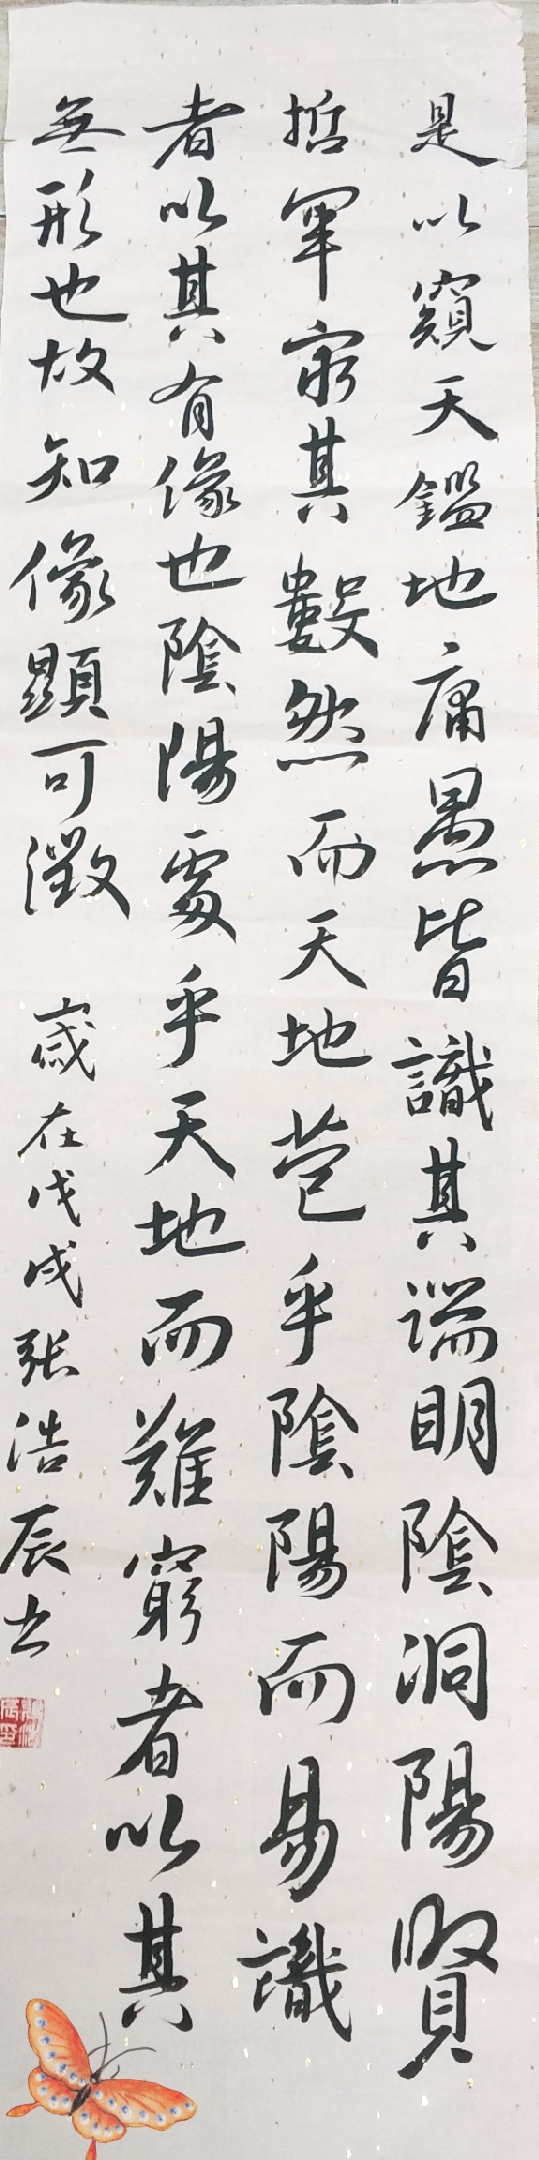 是以窺天鑑地庸愚皆識其端明陰洞陽賢
哲罕窮其數然而天地苞乎陰陽而易識
者以其有像也陰陽處乎天地而難窮者以其
無形也故知像顯可徵
歲在戊戌張浩辰書